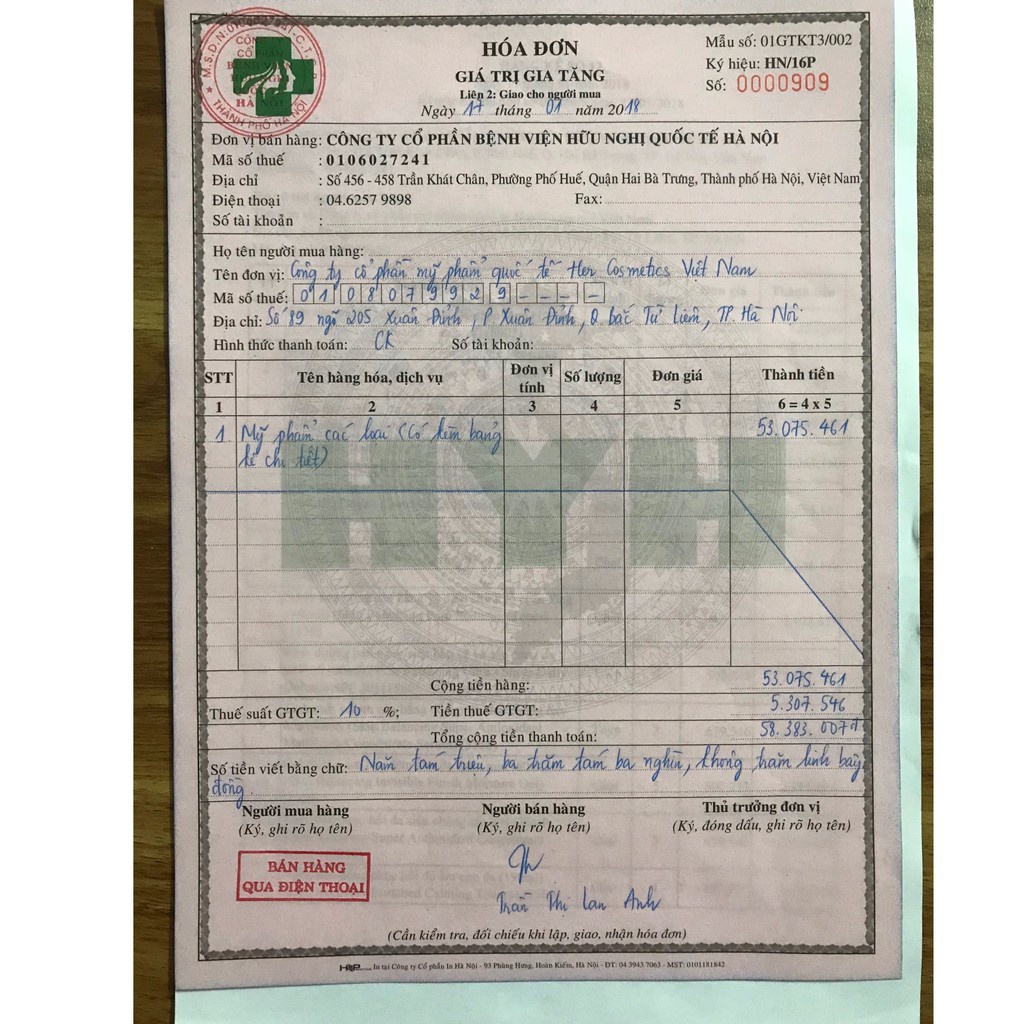 HÓA ĐƠN
GIÁ TRỊ GIA TĂNG
Liên 2: Giao cho người mua
Ngày 17 tháng 01 năm 2018
Mẫu số: 01GTKT3/002
Ký hiệu: HN/16P
Số: 0000909
THÀNH PHỐ HÀ NỘI
Đơn vị bán hàng: CÔNG TY CỔ PHẦN BỆNH VIỆN HỮU NGHỊ QUỐC TẾ HÀ NỘI
Mã số thuế : 0106027241
Địa chỉ : Số 456 - 458 Trần Khát Chân, Phường Phố Huế, Quận Hai Bà Trưng, Thành phố Hà Nội, Việt Nam
Điện thoại : 04.6257 9898 Fax:
Số tài khoản :
Họ tên người mua hàng:
Tên đơn vị: Công ty cổ phần mỹ phẩm quốc tế Her Cosmetics Việt Nam
Mã số thuế: 0108079929
Địa chỉ: Số 89 ngõ 205 Xuân Đỉnh, P Xuân Đỉnh, Q Bắc Từ Liêm, TP. Hà Nôi
Hình thức thanh toán: CK Số tài khoản:
STT Tên hàng hóa, dịch vụ Đơn vị tính Số lượng Đơn giá Thành tiền
1 2 3 4 5 6 = 4 x 5
1 Mỹ phẩm các loại (Có kèm bảng 53.075.461
kê chi tiết)
HYH
Cộng tiền hàng: 53.075.461
Thuế suất GTGT: 10 %; Tiền thuế GTGT: 5.307.546
Tổng cộng tiền thanh toán: 58.383.007đ
Số tiền viết bằng chữ: Năm tám triệu, ba trăm tám ba nghìn, không trăm linh bảy
đồng
Người mua hàng Người bán hàng Thủ trưởng đơn vị
(Ký, ghi rõ họ tên) (Ký, ghi rõ họ tên) (Ký, đóng dấu, ghi rõ họ tên)
BÁN HÀNG
QUA ĐIỆN THOẠI
Trần Thị Lan Anh
(Cần kiểm tra, đối chiếu khi lập, giao, nhận hóa đơn)
In tại Công ty Cổ phần In Hà Nội - 93 Phùng Hưng, Hoàn Kiếm, Hà Nội - ĐT: 04 3943 7063 - MST: 0101181842